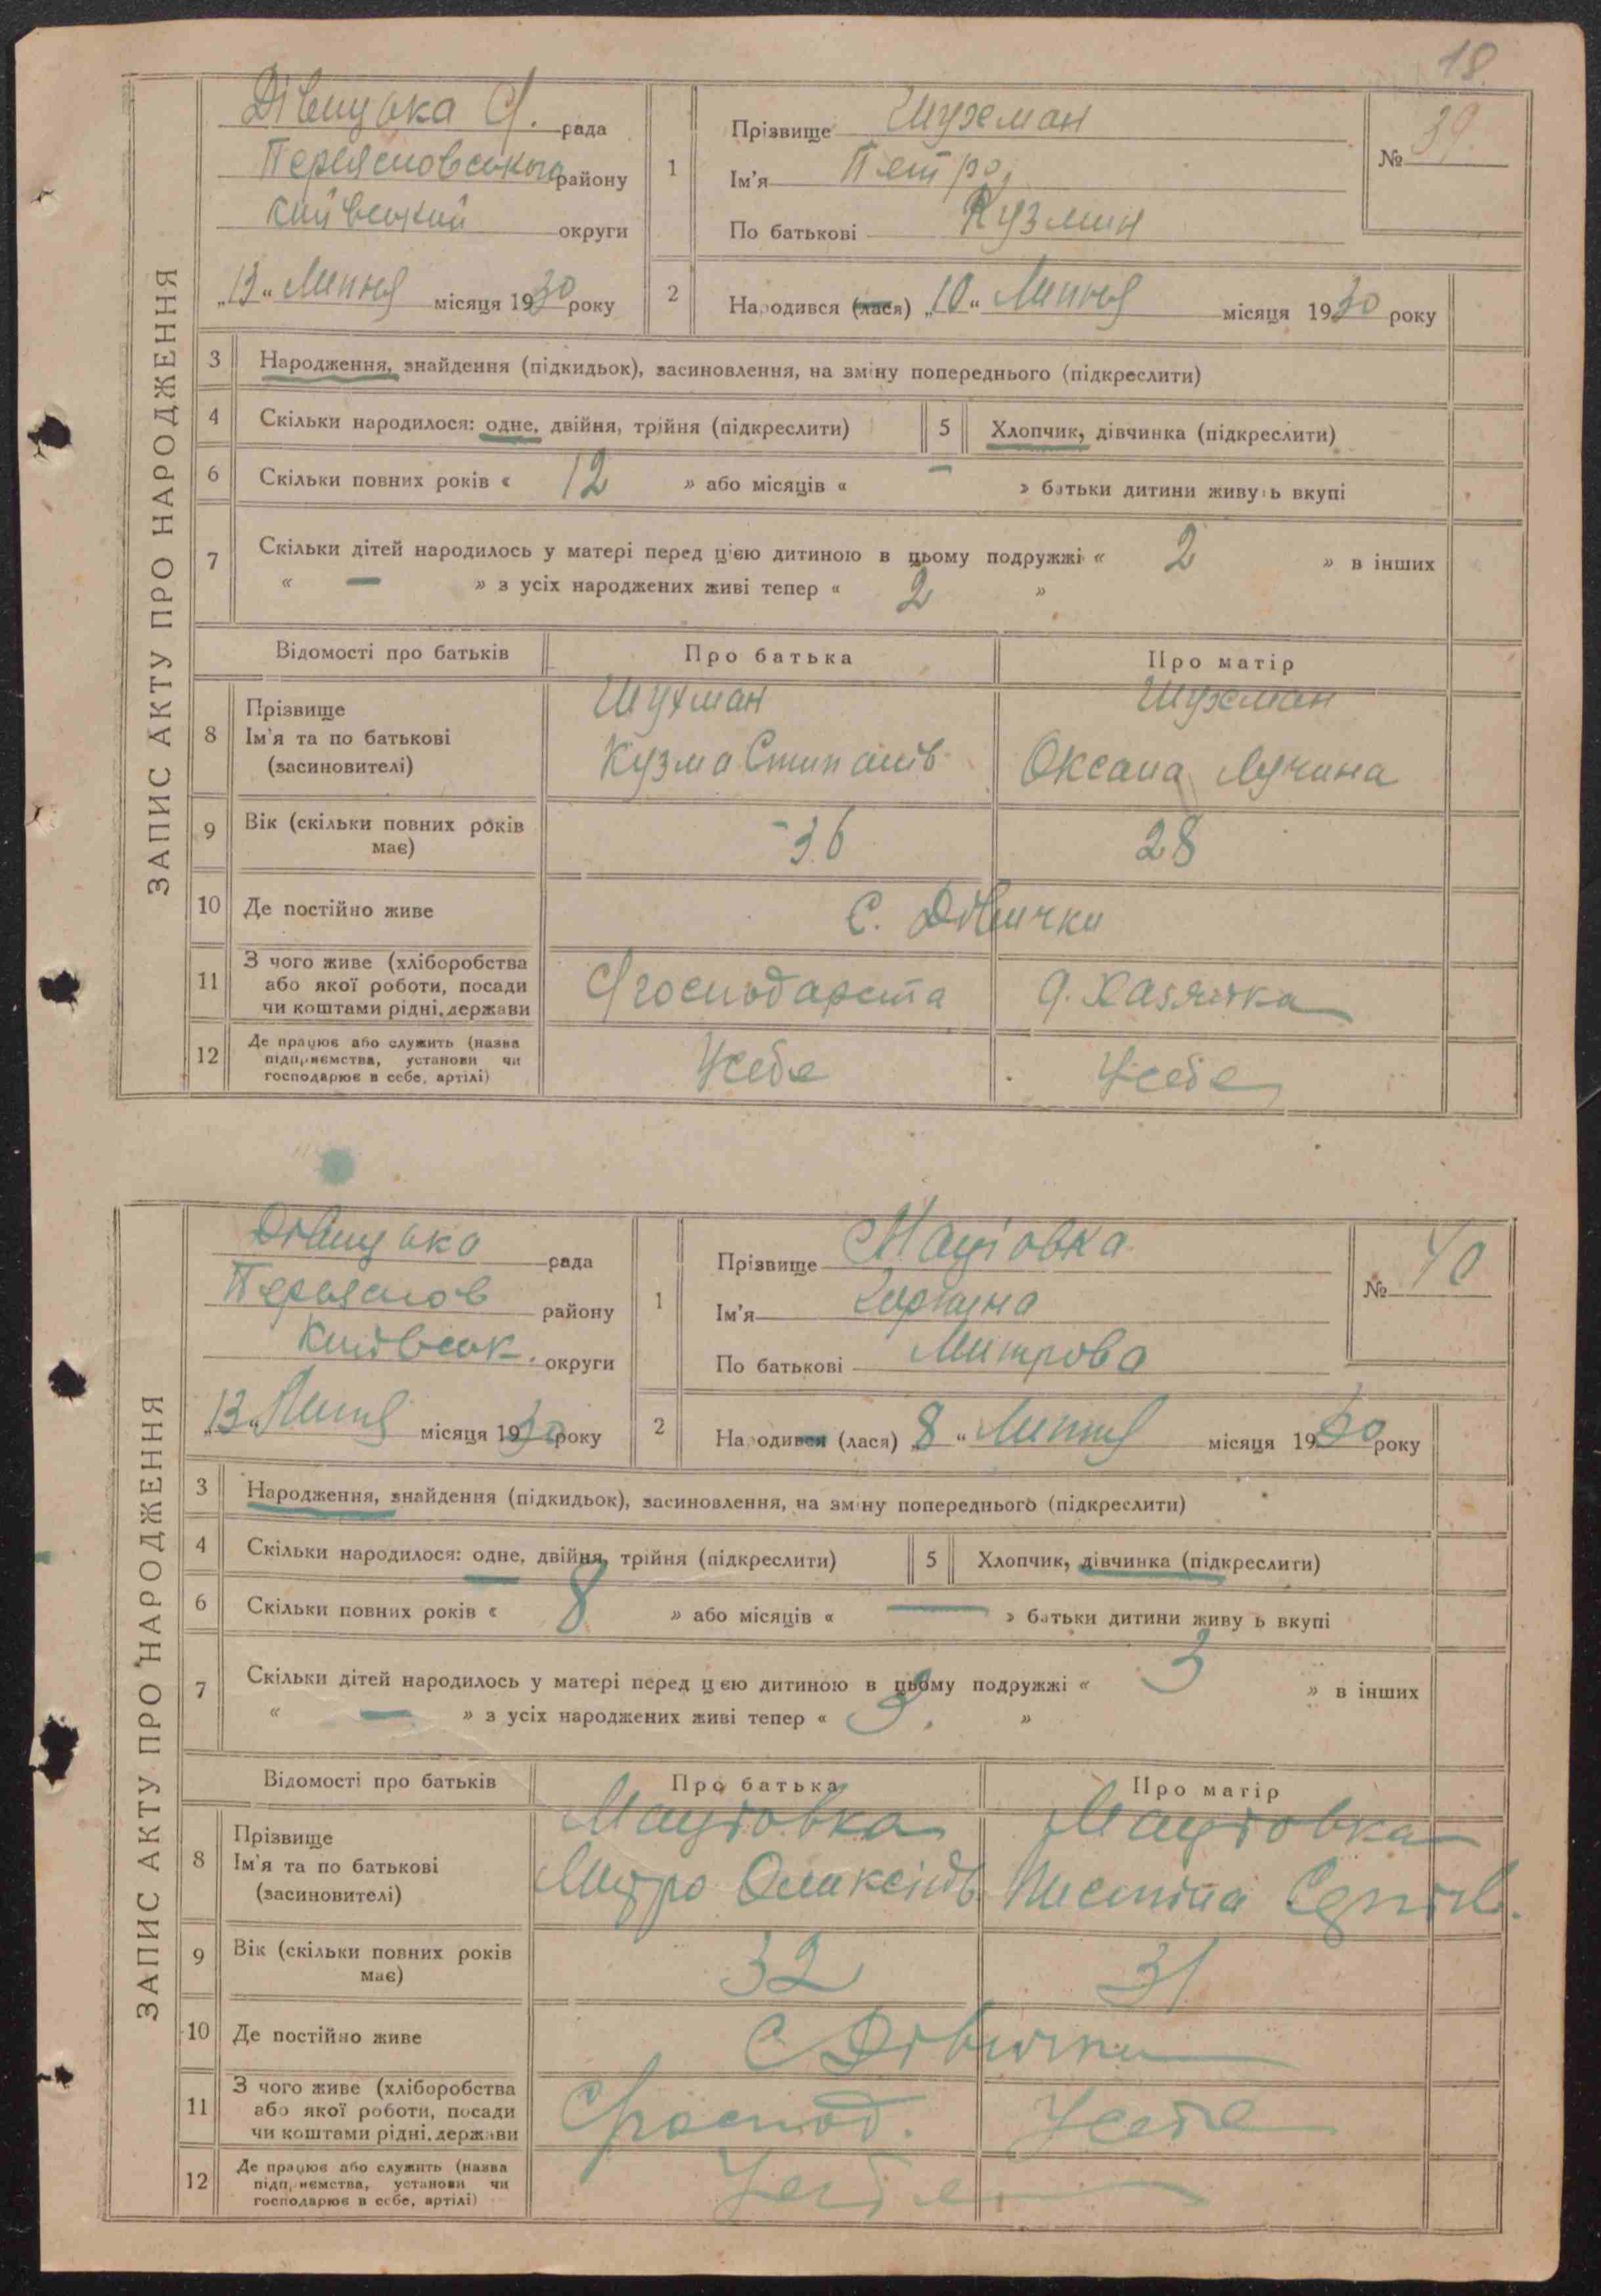 18.
ЗАПИС АКТУ ПРО НАРОДЖЕННЯ
Дівицька С. рада
району
округи
„13“ Липня місяця 1930 року
1
Прізвище Шухман
Ім'я Петро
По батькові Кузмин
№ 39.
2
Народився (лася) „10“ Липня місяця 1930 року
3 Народження, знайдення (підкидьок), засиновлення, на зміну попереднього (підкреслити)
4 Скільки народилося: одне, двійня, трійня (підкреслити) 5 Хлопчик, дівчинка (підкреслити)
6 Скільки повних років « 12 » або місяців « – » батьки дитини живуть вкупі
7 Скільки дітей народилось у матері перед цією дитиною в цьому подружжі « 2 » в інших
« — » з усіх народжених живі тепер « 2 »
Відомості про батьків Про батька Про матір
8 Прізвище Шухман Шухман
Ім'я та по батькові Кузма Оксана
(засиновителі)
9 Вік (скільки повних років 36 28
має)
10 Де постійно живе С. Дівички
11 З чого живе (хліборобства
або якої роботи, посади
чи коштами рідні, держави
12 Де працює або служить (назва Усебе Усебе
підприємства, установи чи
господарює в себе, артілі)
ЗАПИС АКТУ ПРО НАРОДЖЕННЯ
Дівицька рада
району
округи
„13“ Липня місяця 1930 року
1
Прізвище Мацьовка
Ім'я
По батькові Митрова
№ 40
2
Народився (лася) „8“ Липня місяця 1930 року
3 Народження, знайдення (підкидьок), засиновлення, на зміну попереднього (підкреслити)
4 Скільки народилося: одне, двійня, трійня (підкреслити) 5 Хлопчик, дівчинка (підкреслити)
6 Скільки повних років « 8 » або місяців « — » батьки дитини живуть вкупі
7 Скільки дітей народилось у матері перед цією дитиною в цьому подружжі « 3 » в інших
« — » з усіх народжених живі тепер « 3. »
Відомості про батьків Про батька Про матір
8 Прізвище Мацьовка Мацьовка
Ім'я та по батькові Митро
(засиновителі)
9 Вік (скільки повних років 32 31
має)
10 Де постійно живе С Дівички
11 З чого живе (хліборобства Усебе
або якої роботи, посади
чи коштами рідні, держави
12 Де працює або служить (назва Усебе
підприємства, установи чи
господарює в себе, артілі)